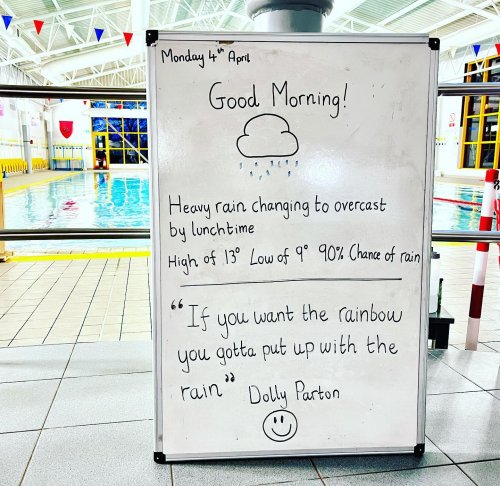 Monday 4th April
Good Morning!
Heavy rain changing to overcast
by lunchtime
High of 13° Low of 9° 90% Chance of rain
"If you want the rainbow
you gotta put up with the
rain" Dolly Parton